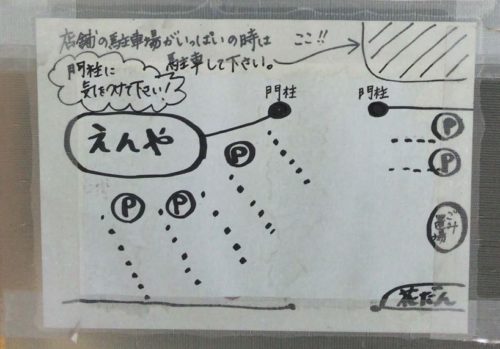 店舗の駐車場がいっぱいの時は
ここ!!
駐車して下さい。
門柱に
気をつけて下さい!
門柱
門柱
えんや
P
P
P
P
P
ごみ
置場
花だん